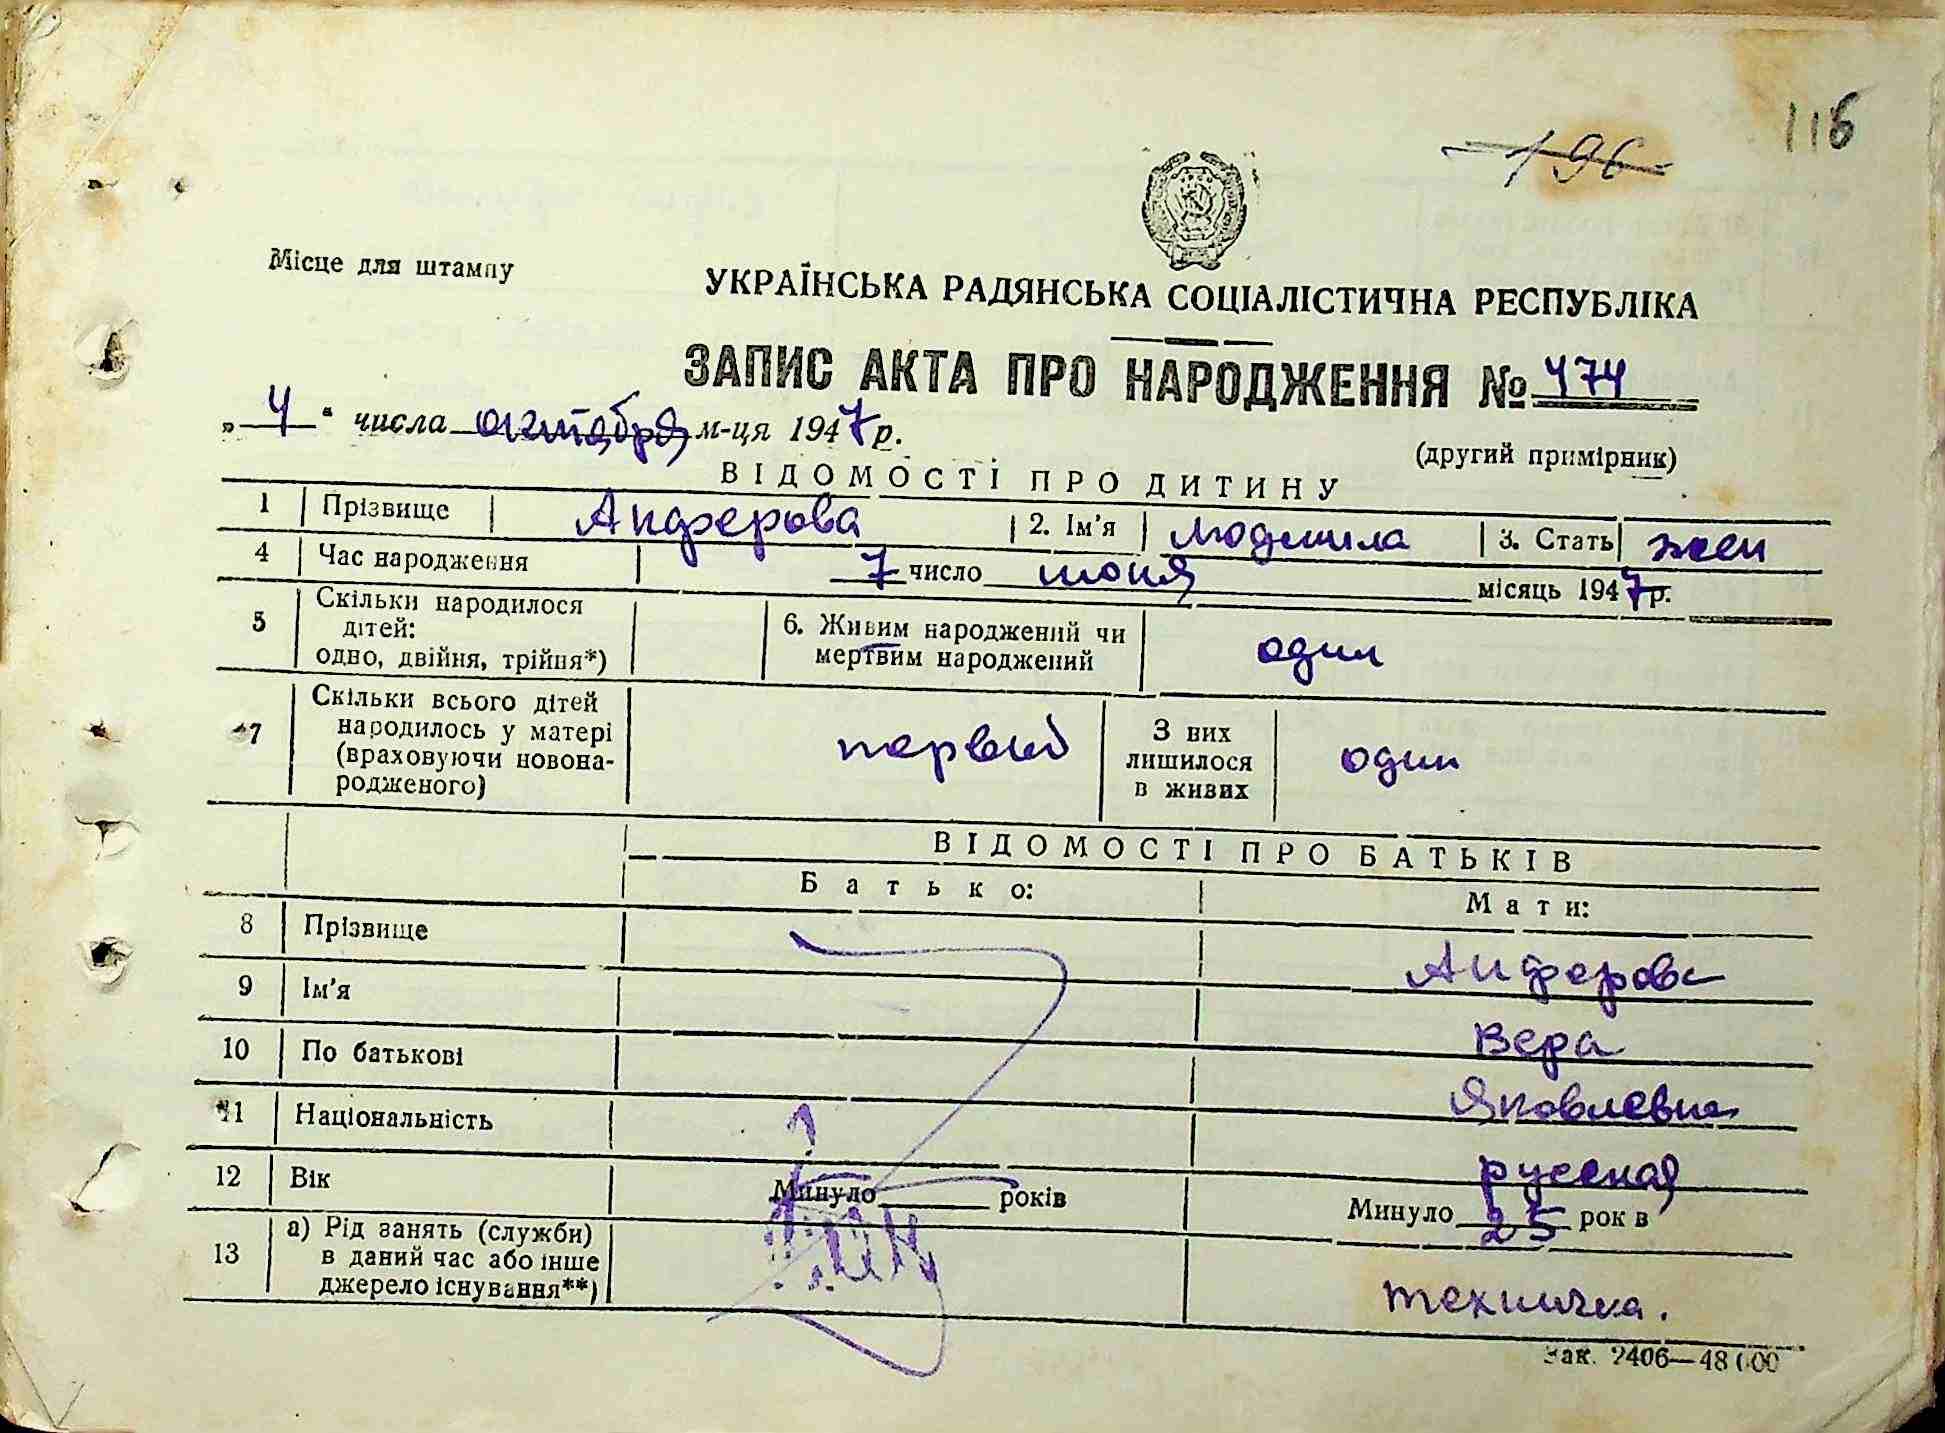 116
196
Місце для штампу
УКРАЇНСЬКА РАДЯНСЬКА СОЦІАЛІСТИЧНА РЕСПУБЛІКА
ЗАПИС АКТА ПРО НАРОДЖЕННЯ № 474
„ 4 " числа октября м-ця 1947 р.
(другий примірник)
ВІДОМОСТІ ПРО ДИТИНУ
1 Прізвище Анферова 2. Ім'я Людмила 3. Стать жен
4 Час народження 7 число июня місяць 1947 р.
5 Скільки народилося дітей: одно, двійня, трійня*) 6. Живим народжений чи мертвим народжений один
7 Скільки всього дітей народилось у матері (враховуючи новонародженого) первый З них лишилося в живих один
ВІДОМОСТІ ПРО БАТЬКІВ
Батько: Мати:
8 Прізвище Анферова
9 Ім'я Вера
10 По батькові Яковлевна
11 Національність русская
12 Вік Минуло років Минуло 25 років
13 а) Рід занять (служби) в даний час або інше джерело існування**) техничка.
Зак. 2406—48